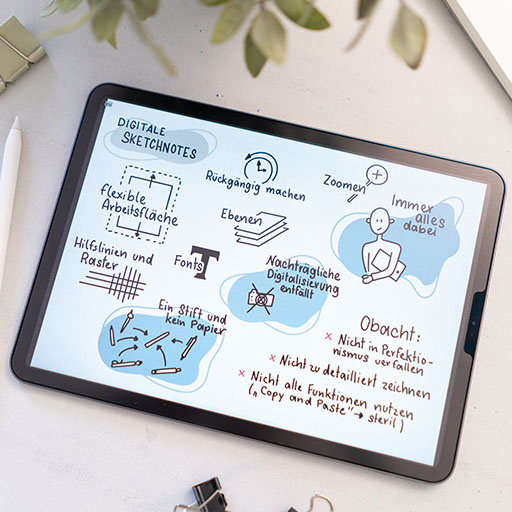 DIGITALE
SKETCHNOTES
Rückgängig machen
Zoomen
Immer
alles
dabei
flexible
Arbeitsfläche
Ebenen
Hilfslinien und
Raster
Fonts
T
Nachträgliche
Digitalisierung
entfällt
Ein Stift und
kein Papier
Obacht:
x Nicht in Perfektio-
nismus verfallen
x Nicht zu detailliert zeichnen
x Nicht alle Funktionen nutzen
(„Copy and Paste" → steril)